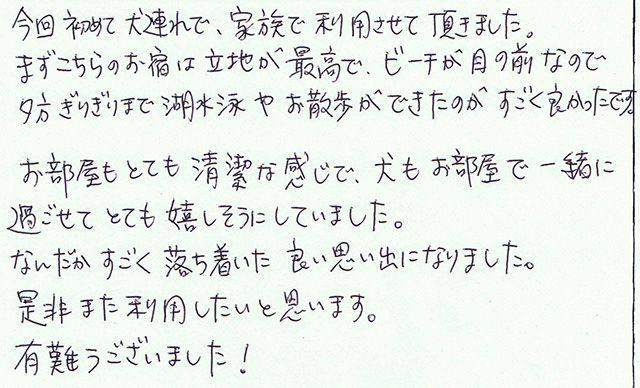 今回初めて犬連れで、家族で利用させて頂きました。
まずこちらのお宿は立地が最高で、ビーチが目の前なので
夕方ぎりぎりまで湖水泳やお散歩ができたのがすごく良かったです。
お部屋もとても清潔な感じで、犬もお部屋で一緒に
過ごせてとても嬉しそうにしていました。
なんだかすごく落ち着いた良い思い出になりました。
是非また利用したいと思います。
有難うございました！